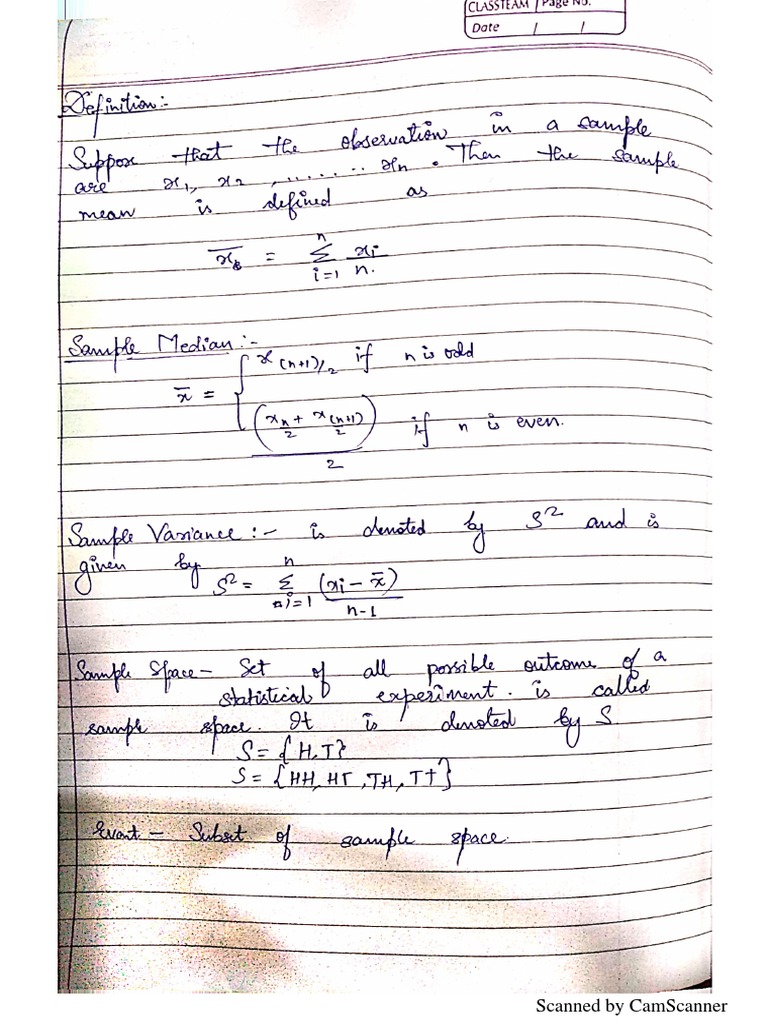 CLASSTEAM Page No.
Date / /
Definition:-
Suppose that the observation in a sample
are x₁, x₂, ....... xₙ. Then the sample
mean is defined as
x̄ = Σ_{i=1}^{n} xᵢ/n.
Sample Median:-
x̄ = { x_{(n+1)/2} if n is odd
(x_{n/2} + x_{(n+1)/2})/2 if n is even.
Sample Variance :- is denoted by S² and is
given by
S² = Σ_{i=1}^{n} (xᵢ - x̄)/(n-1)
Sample Space - Set of all possible outcome of a
statistical experiment. is called
sample space. It is denoted by S.
S = {H, T}
S = {HH, HT, TH, TT}
Event - Subset of sample space.
Scanned by CamScanner